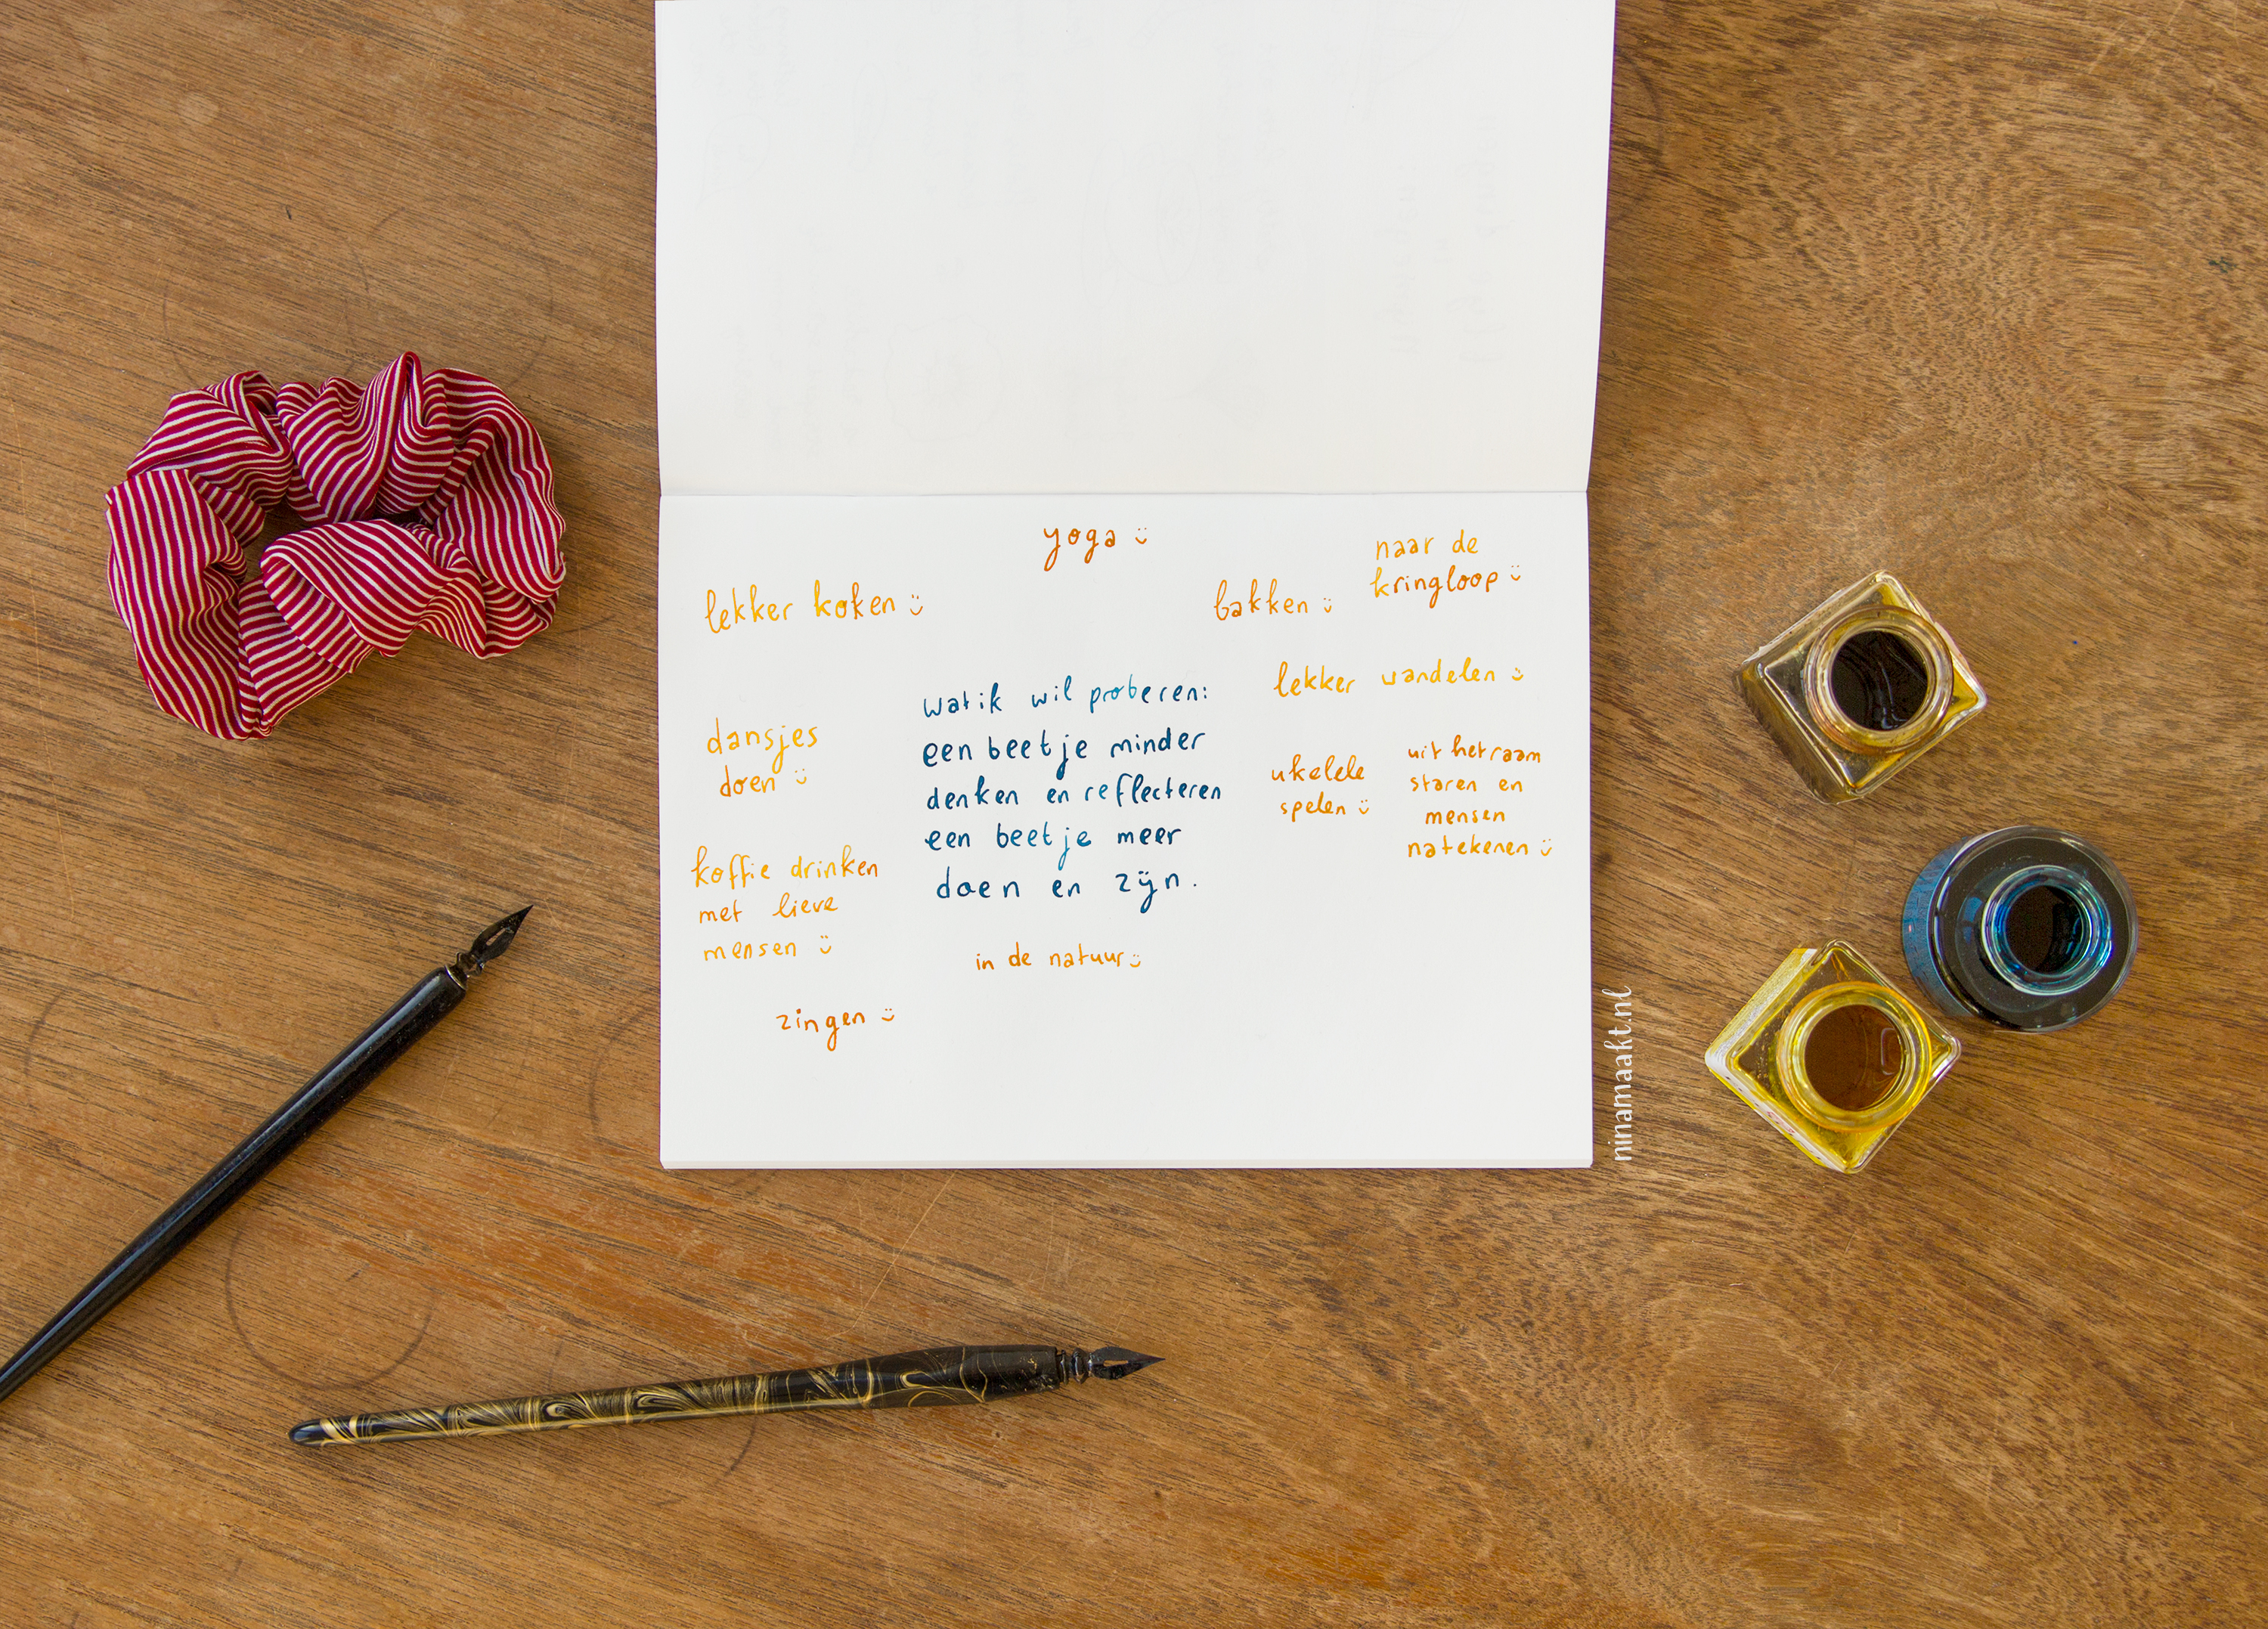 yoga
naar de
kringloop
lekker koken
bakken
lekker wandelen
wat ik wil proberen:
een beetje minder
denken en reflecteren
een beetje meer
doen en zijn.
dansjes
doen
ukelele
spelen
uit het raam
staren en
mensen
natekenen
koffie drinken
met lieve
mensen
in de natuur
zingen
ninamaakt.nl